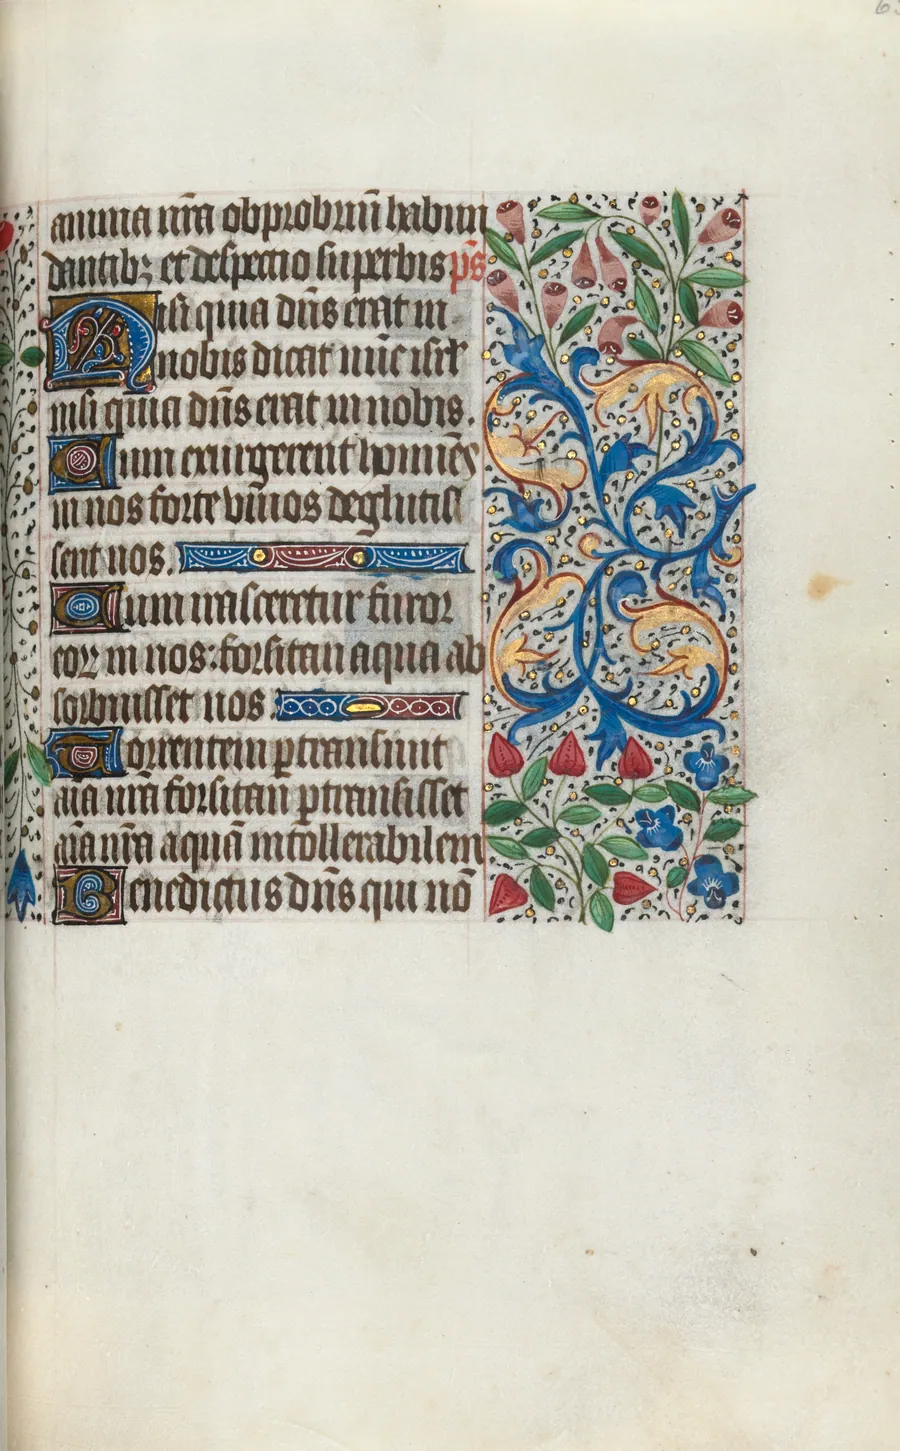 anima nr̄a obprobriū habun
dantibꝫ et despectio superbis p̄s
Nisi quia dn̄s erat in
nobis dicat nūc isr̄l
nisi quia dn̄s erat in nobis.
Cum exurgerent homīes
in nos forte vivos deglutis
sent nos.
Cum irasceretur furor
eoꝝ in nos: forsitan aqua ab
sorbuisset nos
Torrentem ꝑtransivit
aīa nr̄a forsitan ꝑtransisset
aīa nr̄a aquā intollerabilem
Benedictus dn̄s qui nō